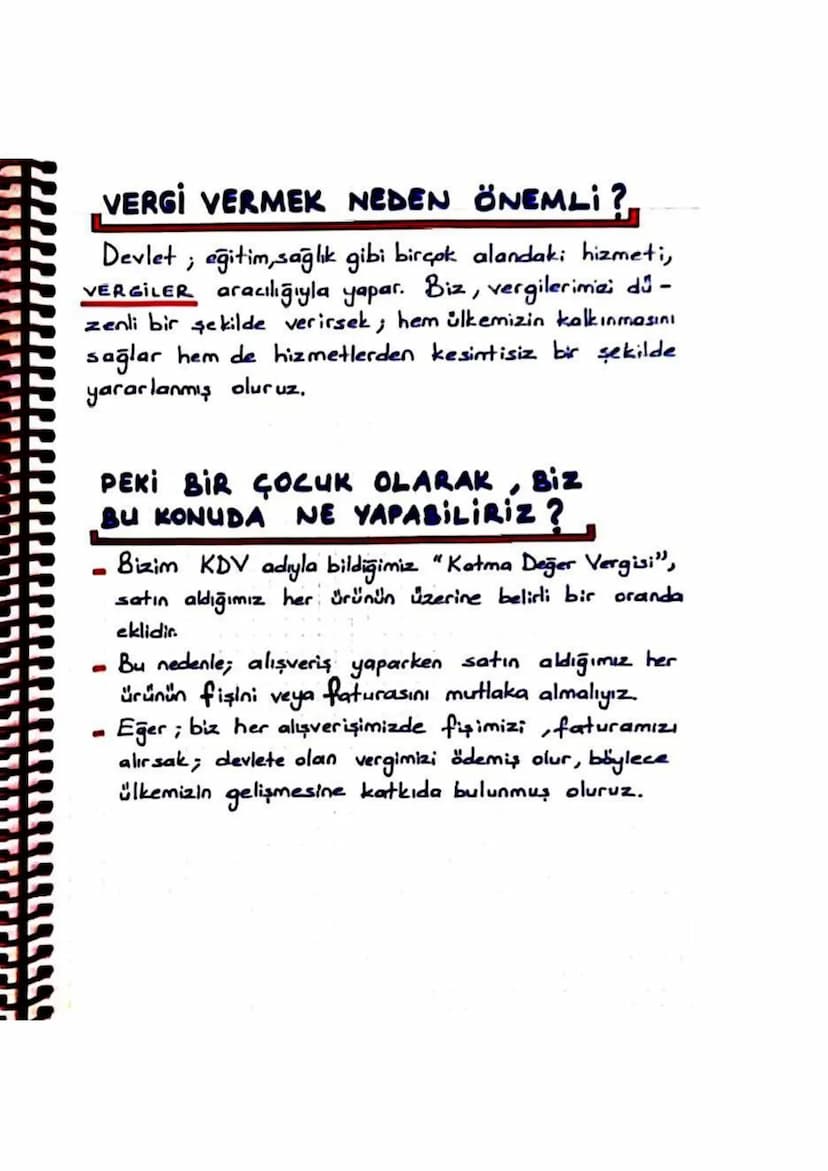 VERGİ VERMEK NEDEN ÖNEMLİ?
Devlet; eğitim,sağlık gibi birçok alandaki hizmeti,
VERGİLER aracılığıyla yapar. Biz, vergilerimizi dü-
zenli bir şekilde verirsek; hem ülkemizin kalkınmasını
sağlar hem de hizmetlerden kesintisiz bir şekilde
yararlanmış oluruz.
PEKİ BİR ÇOCUK OLARAK, BİZ
BU KONUDA NE YAPABİLİRİZ?
- Bizim KDV adıyla bildiğimiz "Katma Değer Vergisi",
satın aldığımız her ürünün üzerine belirli bir oranda
eklidir.
- Bu nedenle; alışveriş yaparken satın aldığımız her
ürünün fişini veya faturasını mutlaka almalıyız.
- Eğer; biz her alışverişimizde fişimizi, faturamızı
alırsak; devlete olan vergimizi ödemiş olur, böylece
ülkemizin gelişmesine katkıda bulunmuş oluruz.